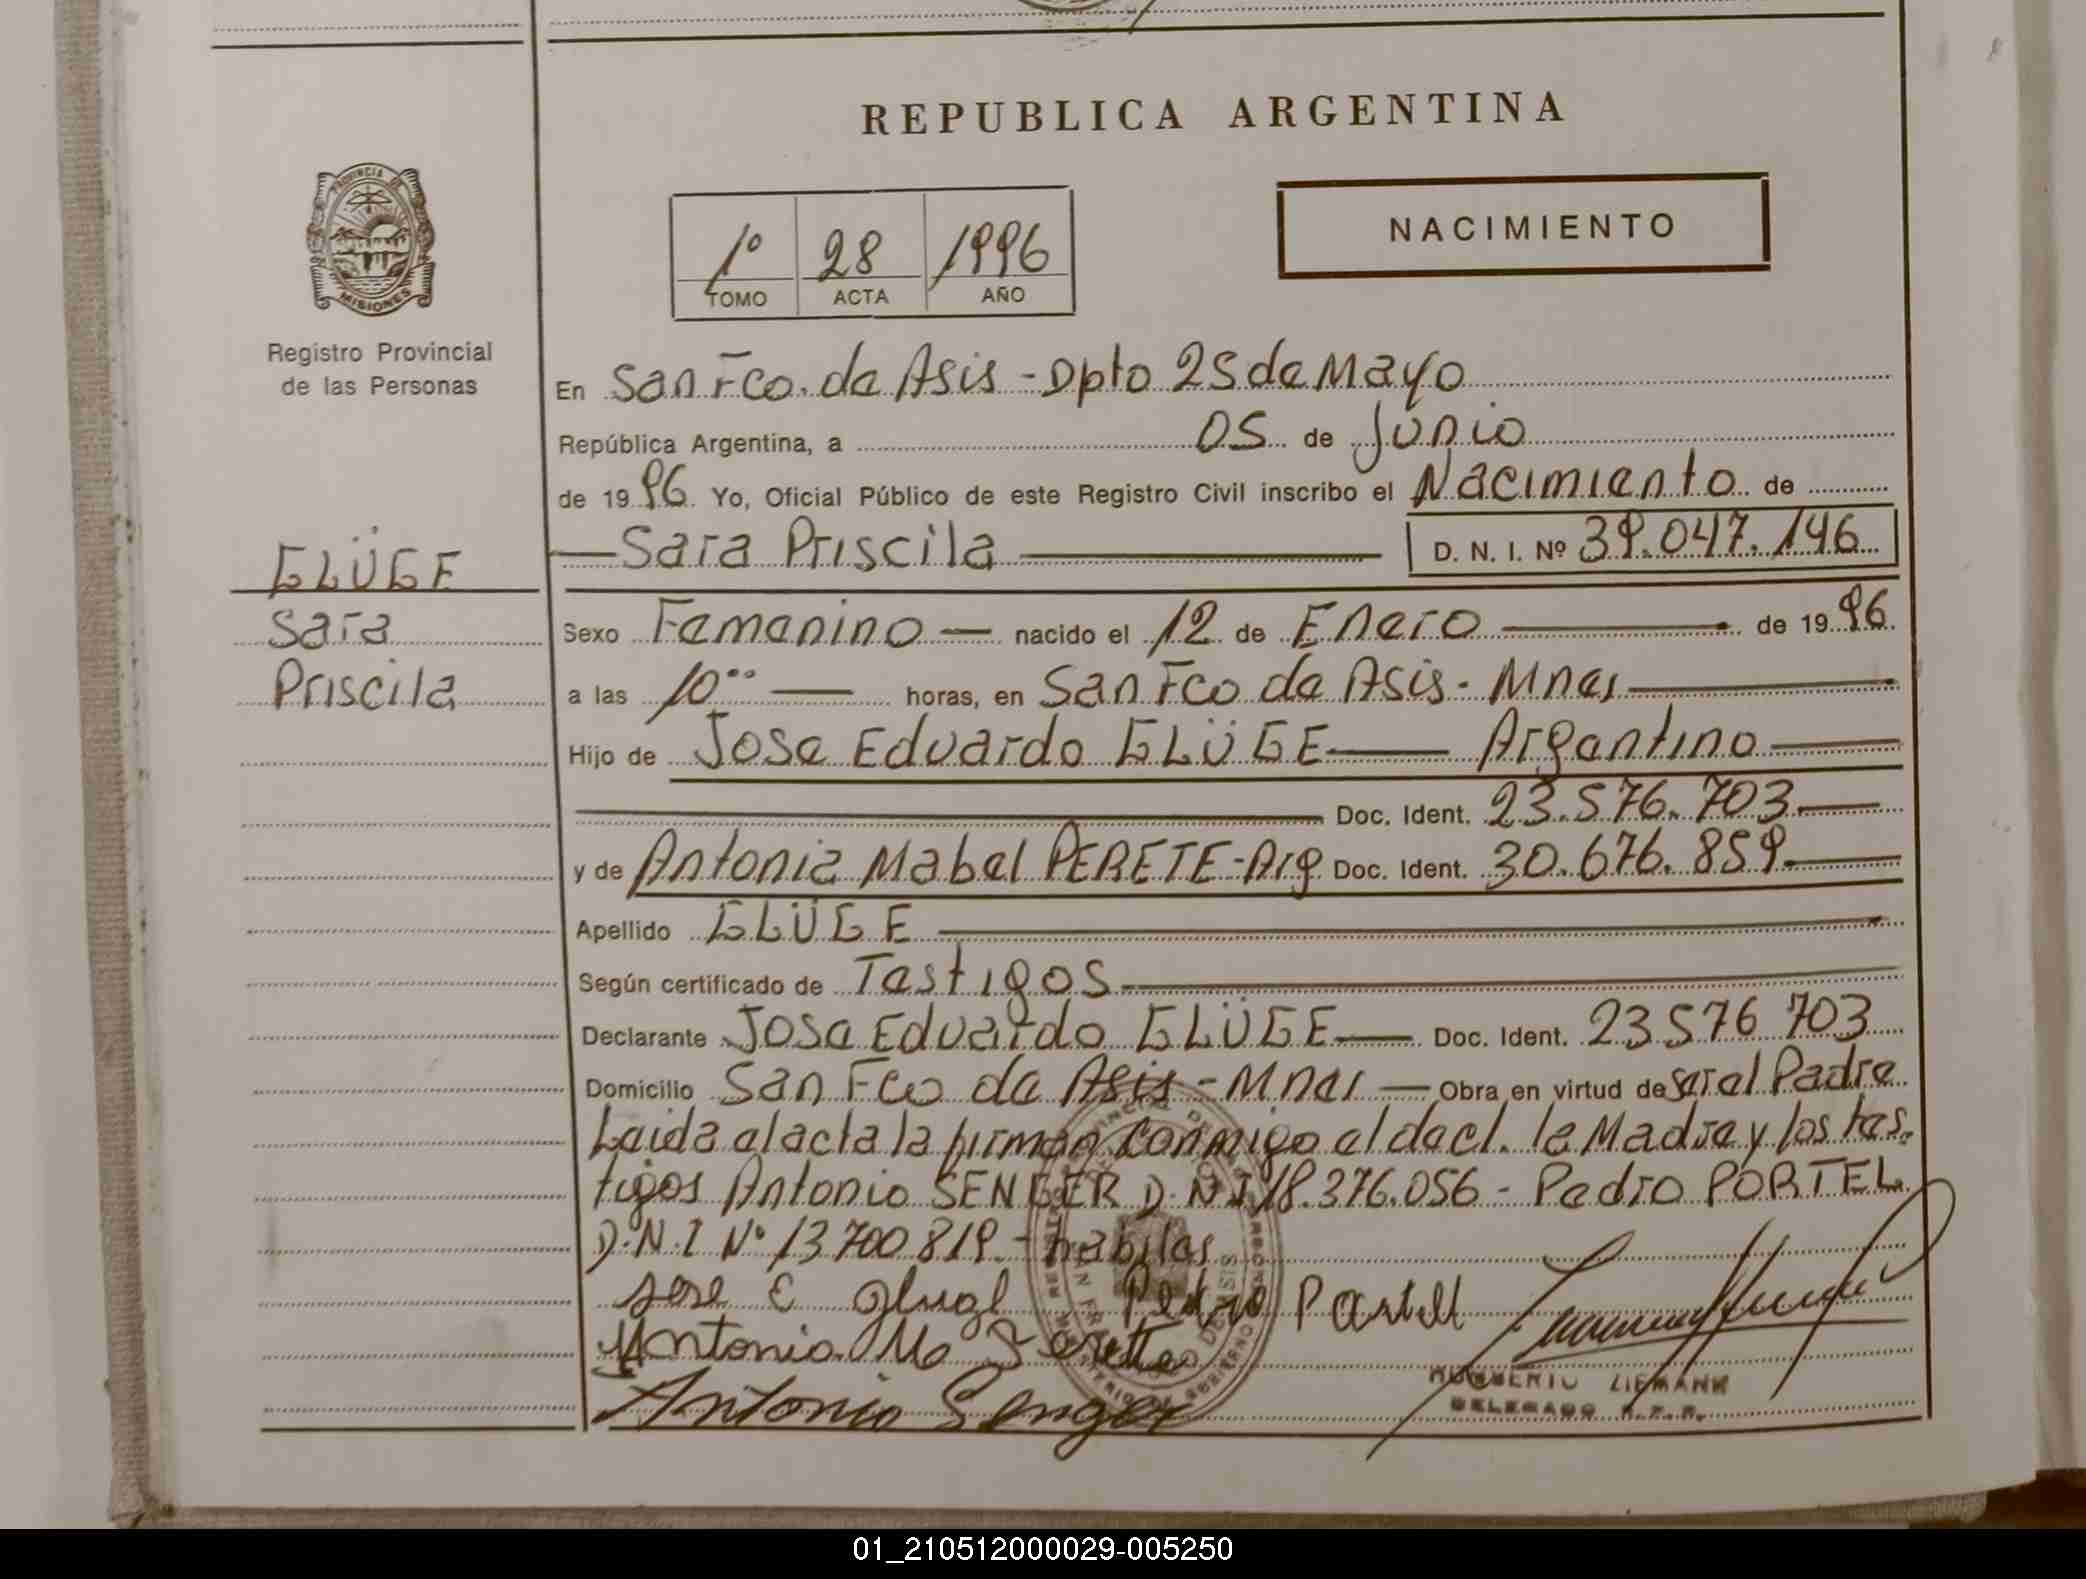 REPUBLICA ARGENTINA
PROVINCIA DE
MISIONES
Registro Provincial
de las Personas
1º 28 1996
TOMO ACTA AÑO
NACIMIENTO
En San Fco. de Asis - Dpto 25 de Mayo
República Argentina, a 05 de Junio
de 19 96 Yo, Oficial Público de este Registro Civil inscribo el Nacimiento de
Sara Priscila D. N. I. Nº 39.047.146
GLÜGE
Sara
Priscila
Sexo Femenino nacido el 12 de Enero de 19 96
a las 10°° horas, en San Fco de Asis - Mnes
Hijo de Jose Eduardo GLÜGE Argentino
Doc. Ident. 23.576.703
y de Antonia Mabel PERETE - Arg Doc. Ident. 30.676.859
Apellido GLÜGE
Según certificado de Testigos
Declarante Jose Eduardo GLÜGE Doc. Ident. 23576703
Domicilio San Fco de Asis - Mnes Obra en virtud de ser el Padre
Leida el acta la firman conmigo el decl. la Madre y los tes-
tigos Antonio SENGER D.N.I 18.376.056 - Pedro PORTEL
D.N.I Nº 13700819 - habiles
Jose E Pedro Portell
Antonia M
Antonio Senger
DELEGADO R.P.P.
01_210512000029-005250